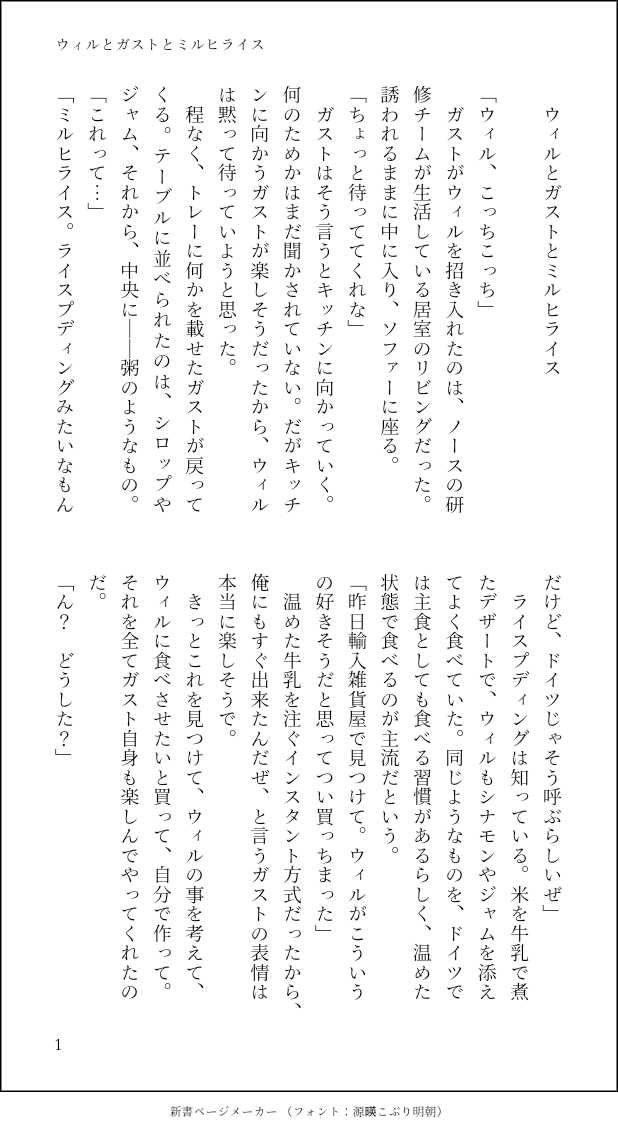 ウィルとガストとミルヒライス
ウィルとガストとミルヒライス
「ウィル、こっちこっち」
ガストがウィルを招き入れたのは、ノースの研
修チームが生活している居室のリビングだった。
誘われるままに中に入り、ソファーに座る。
「ちょっと待っててくれな」
ガストはそう言うとキッチンに向かっていく。
何のためかはまだ聞かされていない。だがキッチ
ンに向かうガストが楽しそうだったから、ウィル
は黙って待っていようと思った。
程なく、トレーに何かを載せたガストが戻って
くる。テーブルに並べられたのは、シロップや
ジャム、それから、中央に――粥のようなもの。
「これって…」
「ミルヒライス。ライスプディングみたいなもん
だけど、ドイツじゃそう呼ぶらしいぜ」
ライスプディングは知っている。米を牛乳で煮
たデザートで、ウィルもシナモンやジャムを添え
てよく食べていた。同じようなものを、ドイツで
は主食としても食べる習慣があるらしく、温めた
状態で食べるのが主流だという。
「昨日輸入雑貨屋で見つけて。ウィルがこういう
の好きそうだと思ってつい買っちまった」
温めた牛乳を注ぐインスタント方式だったから、
俺にもすぐ出来たんだぜ、と言うガストの表情は
本当に楽しそうで。
きっとこれを見つけて、ウィルの事を考えて、
ウィルに食べさせたいと買って、自分で作って。
それを全てガスト自身も楽しんでやってくれたの
だ。
「ん？　どうした？」
1
新書ページメーカー（フォント：源暎こぶり明朝）